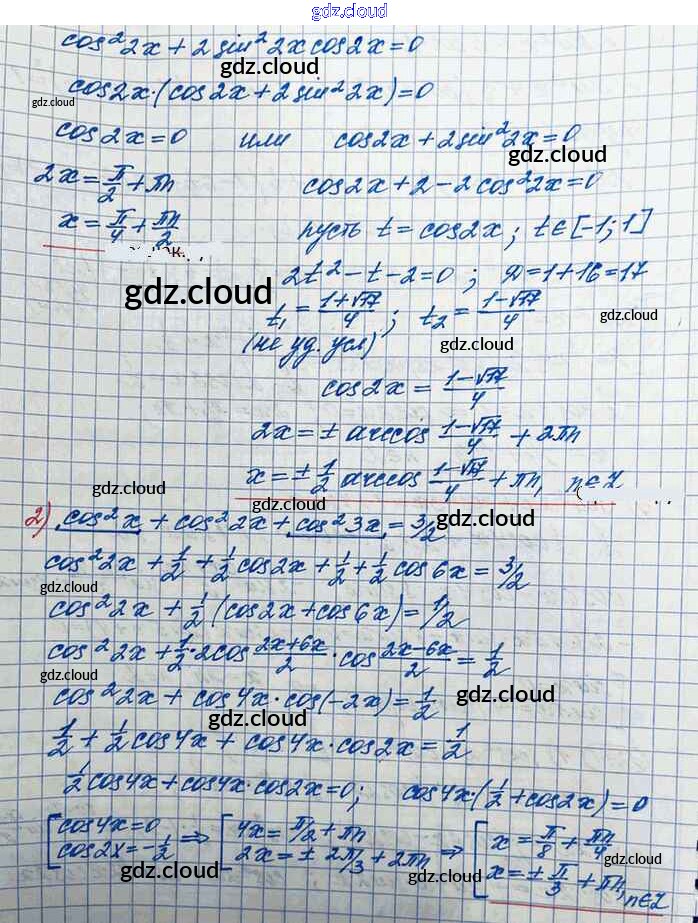 gdz.cloud
cos²2x + 2sin²2x cos2x = 0
gdz.cloud
cos2x·(cos2x + 2sin²2x) = 0
gdz.cloud
cos2x = 0 или cos2x + 2sin²2x = 0
gdz.cloud
2x = π/2 + πn cos2x + 2 - 2cos²2x = 0
x = π/4 + πn/2 пусть t = cos2x; t ∈ [-1; 1]
2t² - t - 2 = 0; D = 1 + 16 = 17
gdz.cloud
t₁ = (1+√17)/4; t₂ = (1-√17)/4
gdz.cloud
(не уд. усл) gdz.cloud
cos2x = (1-√17)/4
2x = ± arccos (1-√17)/4 + 2πn
x = ± 1/2 arccos (1-√17)/4 + πn, n ∈ Z
gdz.cloud
gdz.cloud
2) cos²x + cos²2x + cos²3x = 3/2 gdz.cloud
cos²2x + 1/2 + 1/2 cos2x + 1/2 + 1/2 cos6x = 3/2
gdz.cloud
cos²2x + 1/2 (cos2x + cos6x) = 1/2
cos²2x + 1/2·2cos (2x+6x)/2 · cos (2x-6x)/2 = 1/2
gdz.cloud
cos²2x + cos4x·cos(-2x) = 1/2 gdz.cloud
gdz.cloud
1/2 + 1/2 cos4x + cos4x·cos2x = 1/2
1/2 cos4x + cos4x·cos2x = 0; cos4x·(1/2 + cos2x) = 0
gdz.cloud
[cos4x = 0 ⇒ [4x = π/2 + πn ⇒ [x = π/8 + πn/4
gdz.cloud
cos2x = -1/2 2x = ± 2π/3 + 2πn x = ± π/3 + πn, n∈Z
gdz.cloud